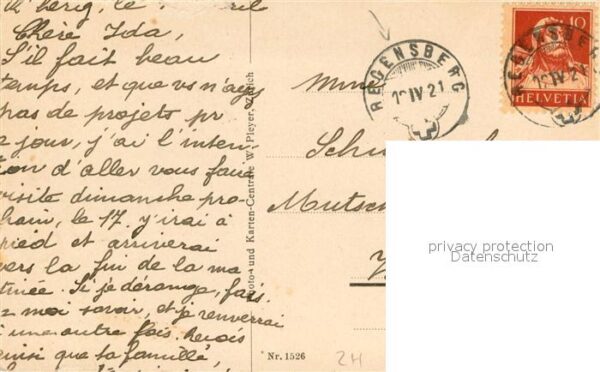 berg, le
Chère Ida,
S'il fait beau
temps, et que vs n'ayez
pas de projets pr
ce jour, j'ai l'inten-
tion d'aller vous faire
visite dimanche pro-
chain, le 17. J'irai à
pied et arriverai
vers la fin de la ma
tinée. Si je dérange, fais.
moi savoir, et je renverrai
à une autre fois. Reçois
ainsi que ta famille,
Photo- und Karten-Centrale W. Pleyer, Zürich
Nr. 1526
2H
REGENSBERG
IV 21
10
HELVETIA
REGENSBERG
IV 21
Mme
Mutsch
privacy protection
Datenschutz